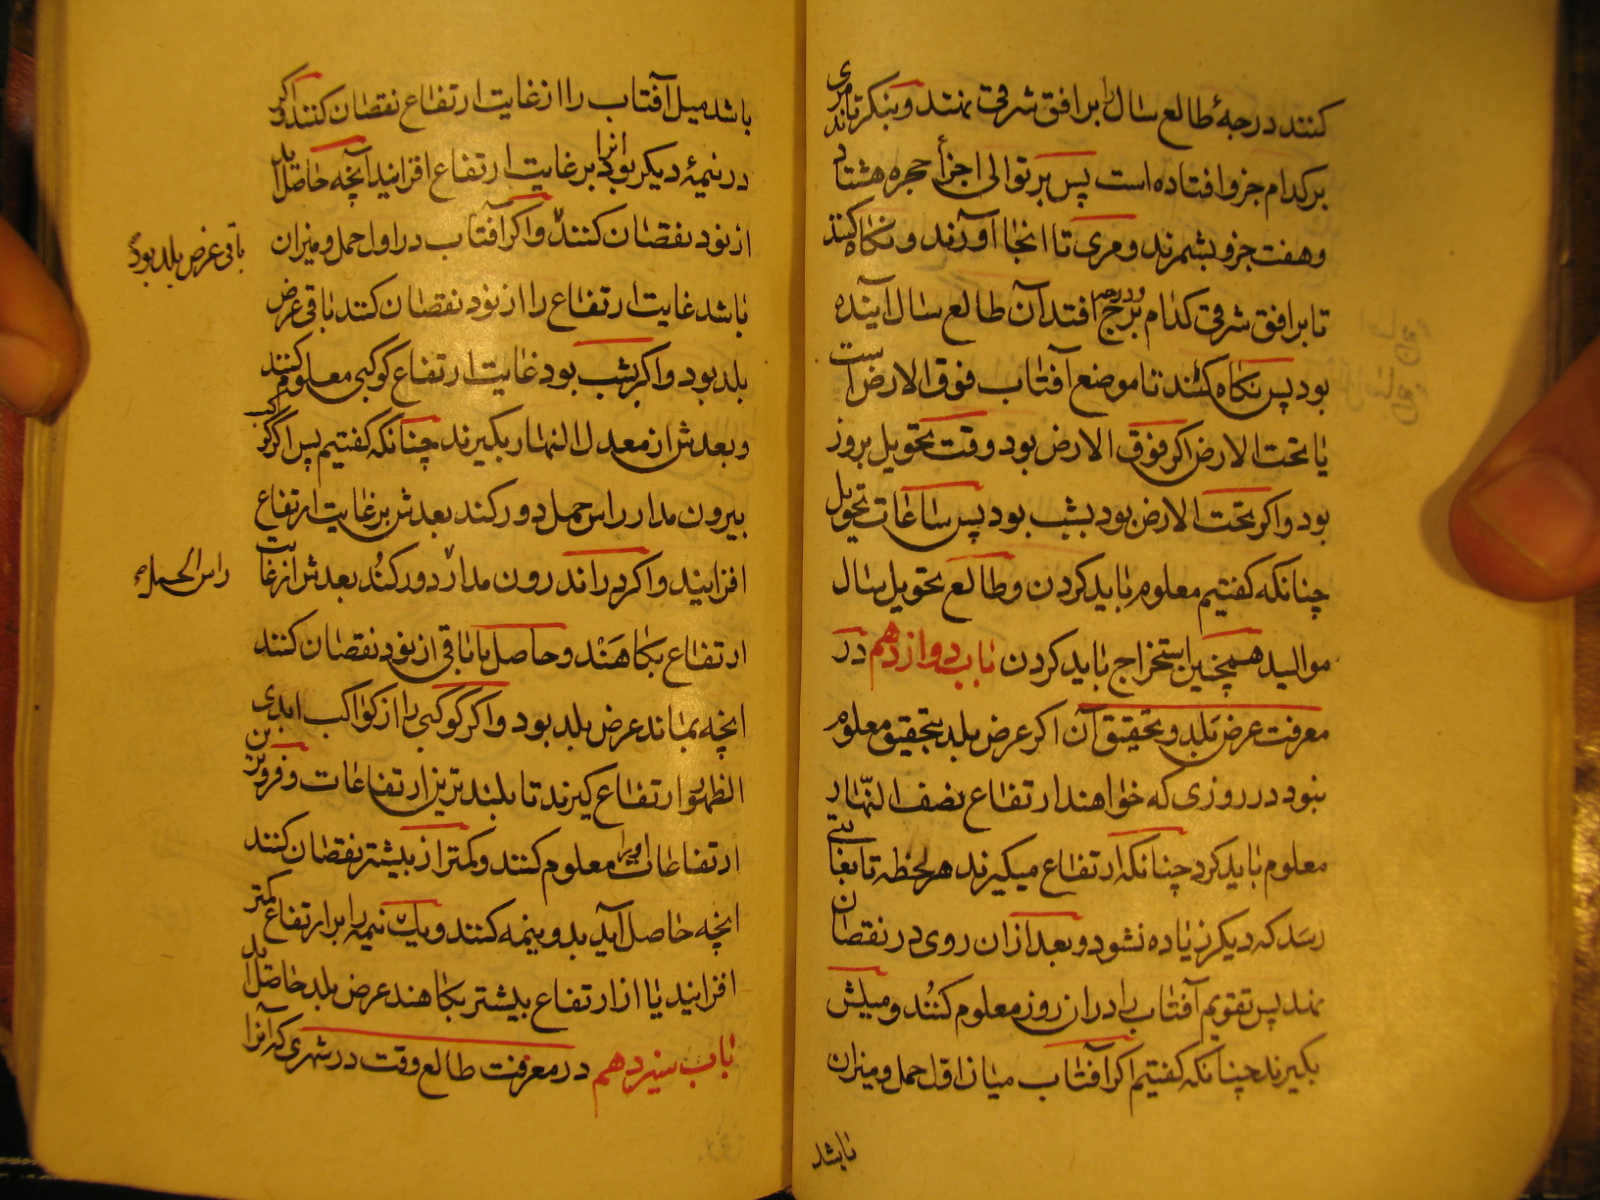 کنند درجهٔ طالع سال را بر افق شرقی نهند و بنکرند تا مری
بر کدام جزو افتاده است پس بر توالی اجزأ حجره هشتاد
و هفت جزو بشمرند و مری تا انجا اورند و نکاه کنند
تا بر افق شرقی کدام برج و درجه افتد آن طالع سال آینده
بود پس نکاه کنند تا موضع آفتاب فوق الارض است
یا تحت الارض اکر فوق الارض بود وقت تحویل بروز
بود و اکر تحت الارض بود بشب بود پس ساعات تحویل
چنانکه کفتیم معلوم باید کردن و طالع تحویل سال
موالید همچنین استخراج باید کردن باب دوازدهم در
معرفت عرض بلد و تحقیق آن اکر عرض بلد بتحقیق معلوم
نبود در روزی که خواهند ارتفاع نصف النهار
معلوم باید کرد چنانکه ارتفاع میکیرند هر لحظه تا بغایتی
رسد که دیکر زیاده نشود و بعد ازان روی در نقصان
نهد پس تقویم آفتاب را دران روز معلوم کنند و میلش
بکیرند چنانکه کفتیم اکر آفتاب میان اول حمل و میزان
باشد
باشد میل آفتاب را از غایت ارتفاع نقصان کنند و اکر
در نیمهٔ دیکر بود انرا بر غایت ارتفاع افزایند آنچه حاصل آید
از نود نقصان کنند و اکر آفتاب در اول حمل و میزان
باقی عرض بلد بود
باشد غایت ارتفاع را از نود نقصان کنند باقی عرض
بلد بود و اکر بشب بود غایت ارتفاع کوکبی معلوم کنند
و بعدش از معدل النهار بکیرند چنانکه کفتیم پس اکر کوکب
بیرون مدار راس حمل دور کند بعدش بر غایت ارتفاع
افزایند و اکر در اندرون مدار دور کند بعدش از غایت
راس الحمل
ارتفاع بکاهند و حاصل یا باقی از نود نقصان کنند
انچه بماند عرض بلد بود و اکر کوکبی را از کواکب ابدی
الظهور ارتفاع کیرند تا بلندترین ارتفاعات و فروترین
ارتفاعات او را معلوم کنند و کمتر از بیشتر نقصان کنند
انچه حاصل آید بدو نیمه کنند و یک نیمه را بر ارتفاع کمتر
افزایند یا از ارتفاع بیشتر بکاهند عرض بلد حاصل آید
باب سیزدهم در معرفت طالع وقت در شهری که آنرا